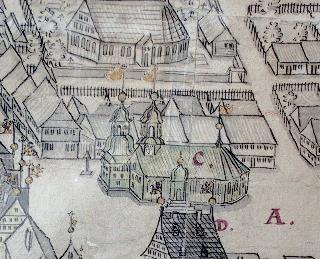 C
D. A.